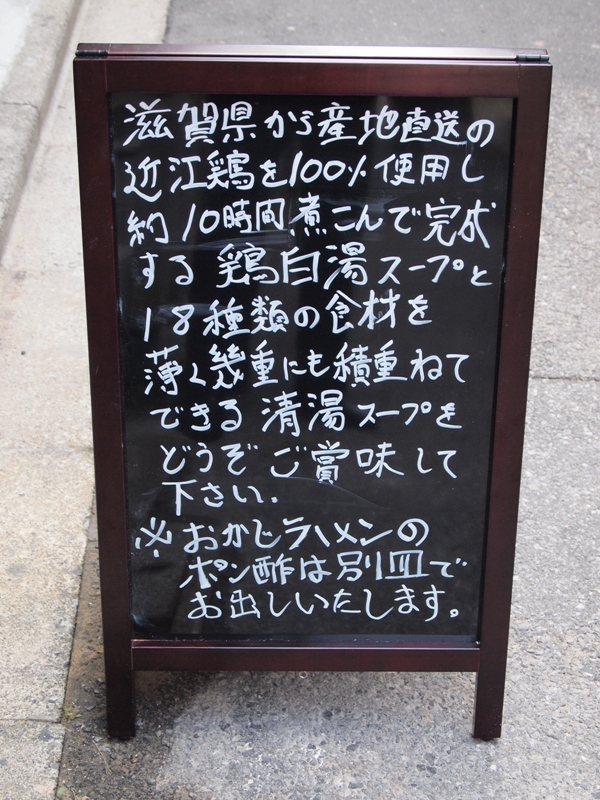 滋賀県から産地直送の
近江鶏を100%使用し
約10時間煮こんで完成
する 鶏白湯スープと
18種類の食材を
薄く幾重にも積重ねて
できる 清湯スープを
どうぞ ご賞味して
下さい.
※おかしラーメンの
ポン酢は別皿で
お出しいたします。